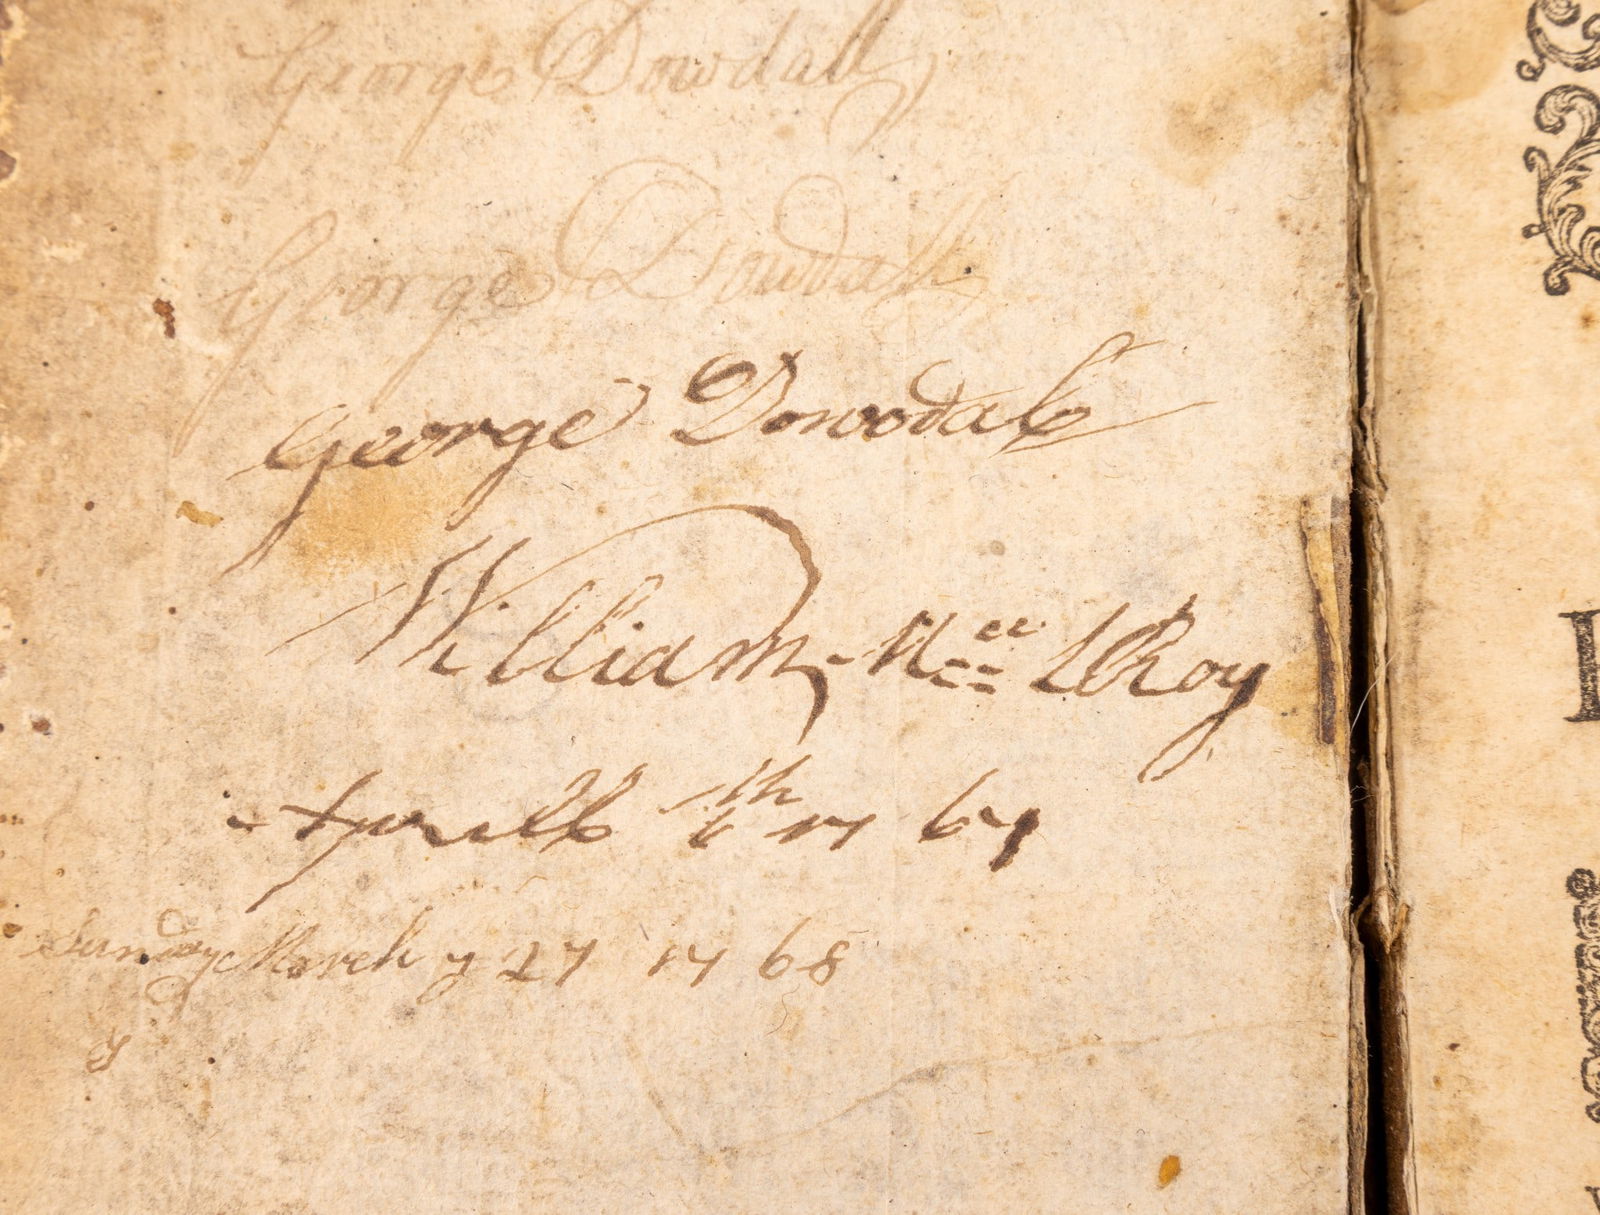 George Dowdall
George Dowdall
George Dowdall
William McElRoy
Aprill 6th 17 67
Sunday March y 27 17 68
y